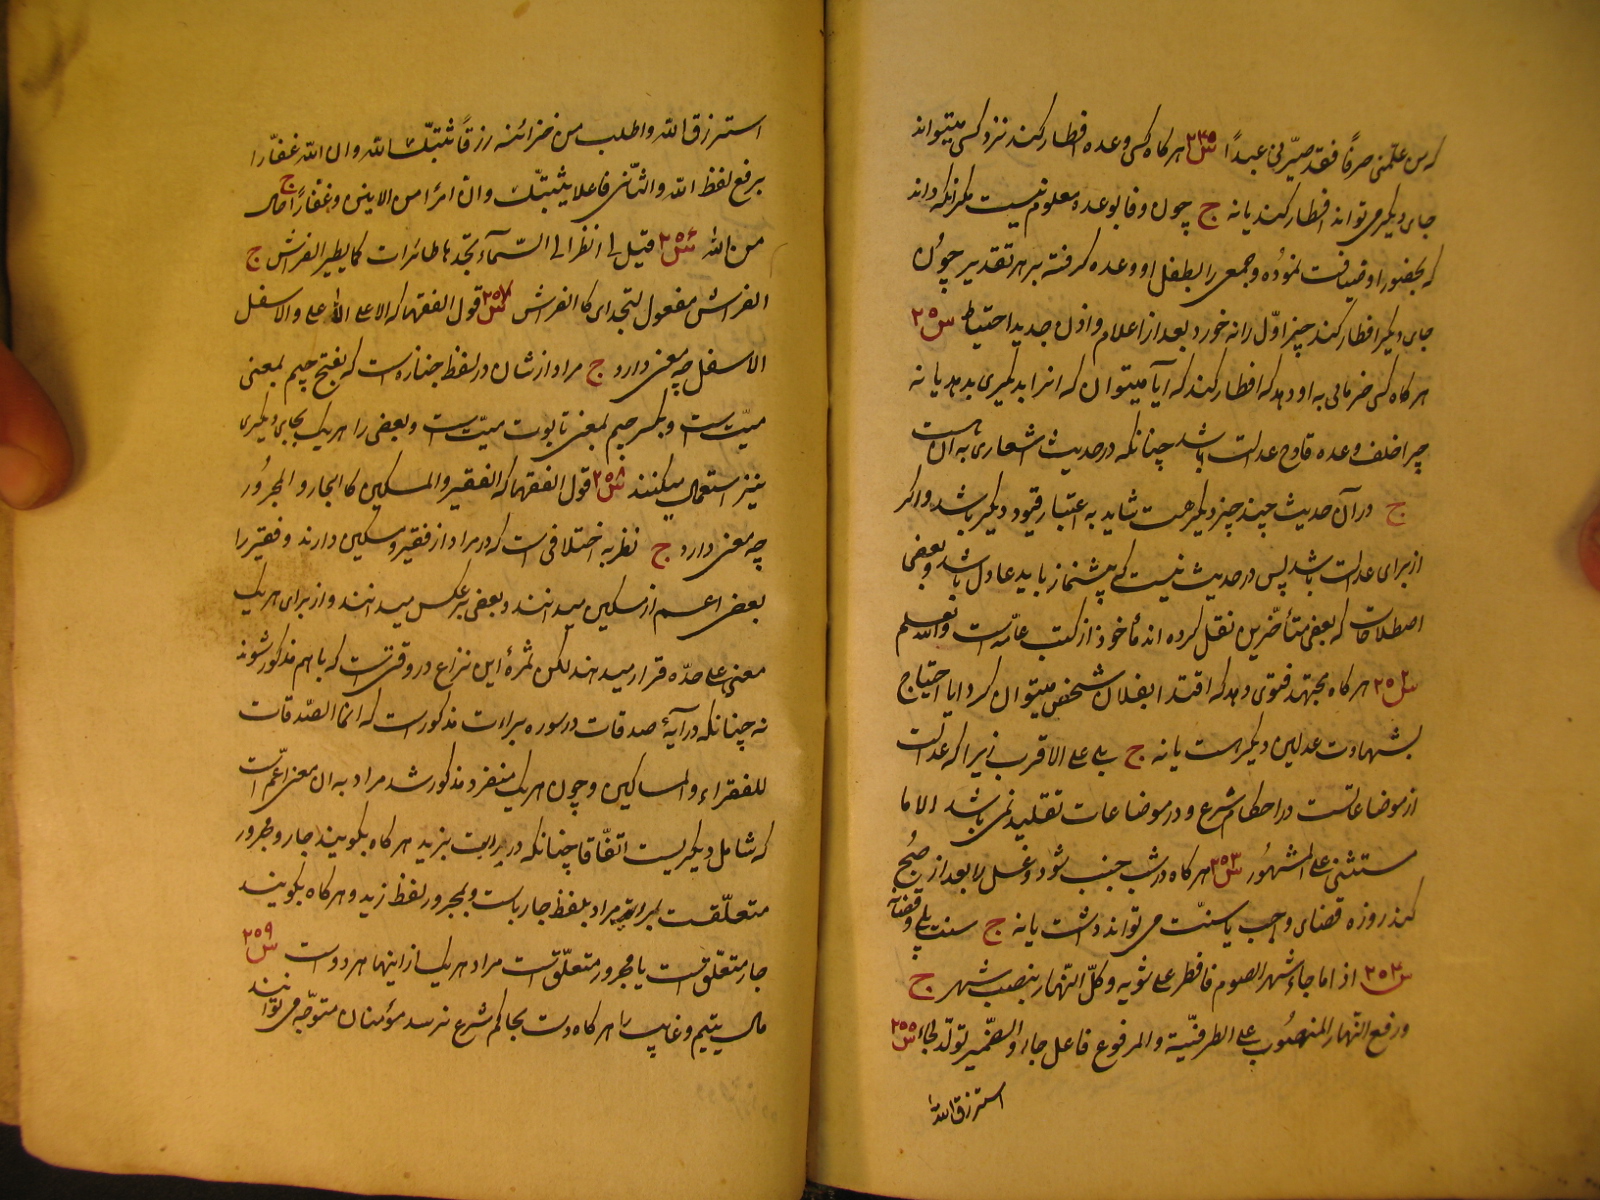 که من علّمنی حرفاً فقد صیّرنی عبداً س۲۳۵ هرکاه کسی وعده افطار کند نزد کسی میتواند
جای دیکر می تواند افطار کند یا نه ج چون وفا بوعده معلوم نیست مکر آنکه داند
که بحضور او ضیافت نموده و جمعی را بطفل او وعده کرفته بر هر تقدیر چون
جای دیکر افطار کند چیز اوّل را نه خورد بعد از اعلام و اذن جدید احتیاط س۲۵
هرکاه کسی خرمائی به او دهد که افطار کند که آیا میتوان که انرا بدیکری بدهد یا نه
چرا خلف وعده قادح عدالت باشد چنانکه در حدیث اشعاری به آن هست
ج در آن حدیث چند چیز دیکر هست شاید به اعتبار قیود دیکر باشد و اکر
از برای عدالت باشد پس در حدیث نیست که پیشنماز باید عادل باشد و بعضی
اصطلاحات که بعضی متأخرین نقل کرده اند مأخوذ از کتب عامّه است والله تعلم
س۲۵۲ هرکاه مجتهد فتوی دهد که اقتدا بفلان شخص میتوان کرد ایا احتیاج
بشهادت عدلین دیکر هست یا نه ج بلی علی الاقرب زیرا که عدالت
از موضاعاتست در احکام شرع و در موضاعات تقلید نمی باشد الا ما
ستثنی علی المشهور س۲۵۳ هرکاه در شب جنب شود و غسل را بعد از صبح
کند روزه قضای واجب یا سنّت می تواند داشت یا نه ج سنت بلی و قضا نه
س۲۵۴ اذا ما جاء شهر الصوم فافطر علی ثویه و کلّ النّهار بنصب شهر ج
و رفع النّهار المنصوب علی الظرفیّة و المرفوع فاعل جاء و الضّمیر تولّد لجاء س۲۵۵
استرزق الله
استرزق الله واطلب من خزائنه رزقاً یثبتک الله وان الله غفّارا
برفع لفظ الله والثّانی فاعلا یثبتّک وان امرا من الاینین وغفاراً حال ج
من الله س۲۵۶ قیل لی انظر الی السّمآء تجدها طائرات کما یطیر الفراش ج
الفراش مفعول لتجد ای کالفراش س۲۵۷ قول الفقها که الاعلی الاعلی والاسفل
الاسفل چه معنی دارد ج مراد از شان در لفظ جنازه است که بفتح جیم بمعنی
میّت است و بکسر جیم بمعنی تابوت میّت است و بعضی را هر یک بجای دیکری
نیز استعمال میکنند س۲۵۸ قول الفقها که الفقیر والمسکین کالجار والمجرور
چه معنی دارد ج نظر به اختلافی است که در مراد از فقیر و مسکین دارند و فقیر را
بعضی اعم از مسکین میدانند و بعضی بر عکس میدانند و از برای هر یک
معنی علی حدّه قرار میدهند لکن ثمرۀ این نزاع در وقتی است که با هم مذکور شوند
نه چنانکه در آیۀ صدقات در سوره براءت مذکور است که انما الصّدقات
للفقراء والمساکین و چون هر یک منفرد مذکور شد مراد به ان معنی اعمّ است
که شامل دیکریست اتّفاقا چنانکه در مررت بزید هرکاه بکویند جار و مجرور
متعلّقست بمررت مراد بلفظ جار باست و بمجرور لفظ زید و هرکاه بکویند
جار متعلّق است یا مجرور متعلّق است مراد هر یک از اینها هر دو است س۲۵۹
مال یتیم و غایب را هرکاه دست بحاکم شرع نرسد مؤمنان متوجّه می توانند